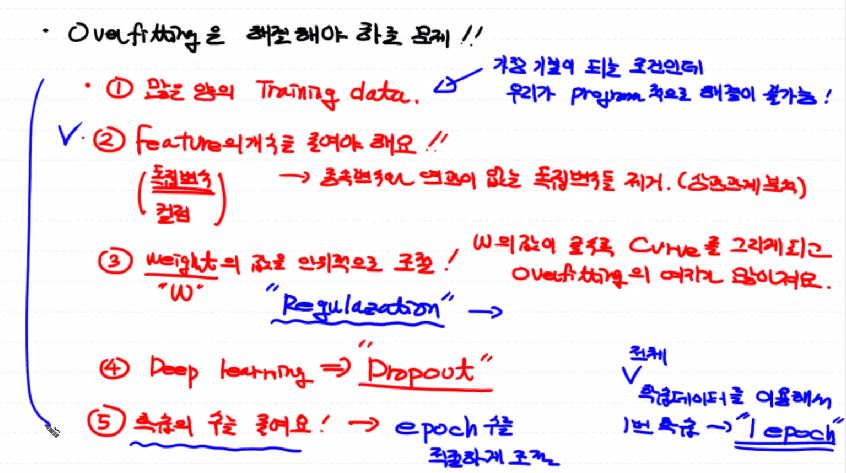 · Overfitting은 해결해야 하는 문제 !!
· ① 많은 양의 Training data.
가장 기본이 되는 조건인데
우리가 program적으로 해결이 불가능!
② feature의 개수를 줄여야 해요 !!
(독립변수
컬럼)
→ 종속변수와 연관이 없는 독립변수들 제거. (상관관계 분석)
③ weight의 값을 인위적으로 조절!
"W"
W의 값이 클수록 Curve를 그리게 되고
Overfitting의 여지가 많아져요.
"Regulazation" →
④ Deep learning ⇒ "Dropout"
⑤ 학습의 수를 줄여요! → epoch 수를
적절하게 조절
전체
학습데이터를 이용해서
1번 학습 → "1 epoch"